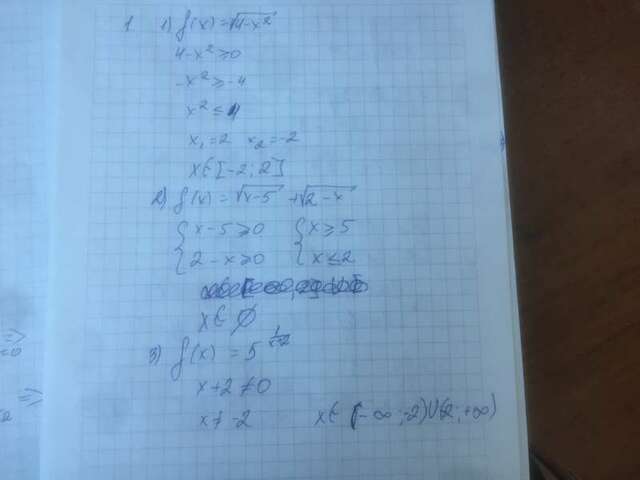 1 1) f(x)=√4-x²
4-x²≥0
-x²≥-4
x²≤4
x₁=2 x₂=-2
x∈[-2; 2]
2) f(x)=√x-5 +√2-x
{x-5≥0 {x≥5
{2-x≥0 {x≤2
x∈∅
3) f(x) = 5
x+2≠0
x≠-2 x∈(-∞;-2)∪(2;+∞)
=>
=0
=>